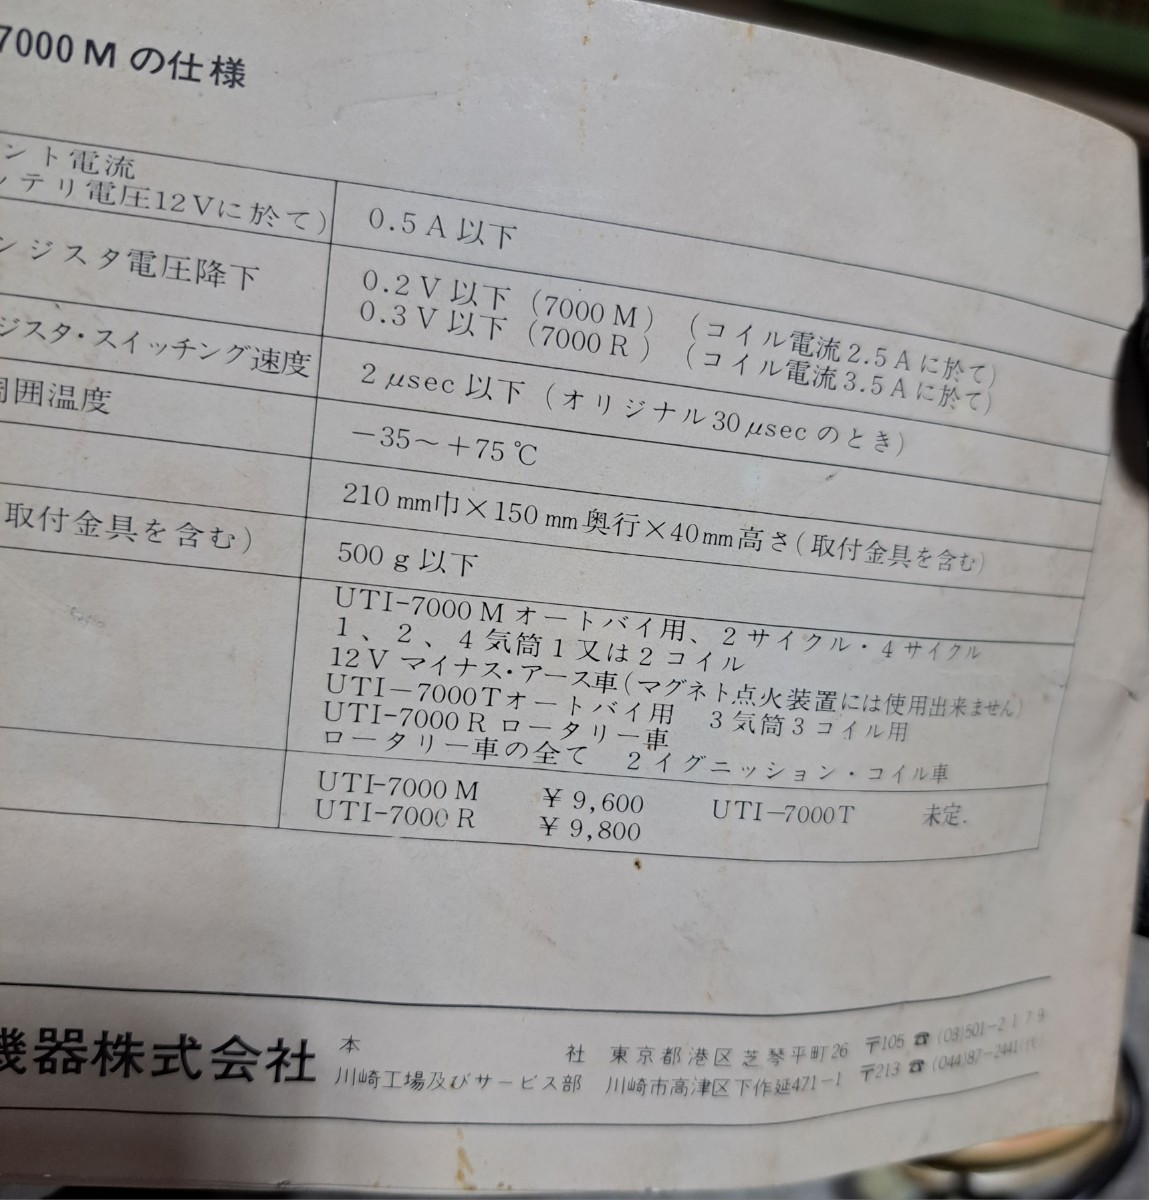 7000 M の仕様
ント電流
ッテリ電圧12Vに於て)
0.5 A 以下
ンジスタ電圧降下
0.2 V 以下 (7000 M) (コイル電流2.5Aに於て)
0.3 V 以下 (7000 R) (コイル電流3.5Aに於て)
ジスタ・スイッチング速度
2 μsec 以下 (オリジナル30μsecのとき)
周囲温度
-35～+75℃
210 mm巾×150mm奥行×40mm高さ(取付金具を含む)
取付金具を含む)
500 g 以下
UTI-7000 M オートバイ用、2サイクル・4サイクル
1、2、4気筒1又は2コイル
12V マイナス・アース車(マグネト点火装置には使用出来ません)
UTI-7000Tオートバイ用 3気筒3コイル用
UTI-7000 R ロータリー車
ロータリー車の全て 2イグニッション・コイル車
UTI-7000 M ¥9,600 UTI-7000T 未定.
UTI-7000 R ¥9,800
機器株式会社
本社 東京都港区芝琴平町26 〒105 ☎ (03)501-2179
川崎工場及びサービス部 川崎市高津区下作延471-1 〒213 ☎ (044)87-2441(代)